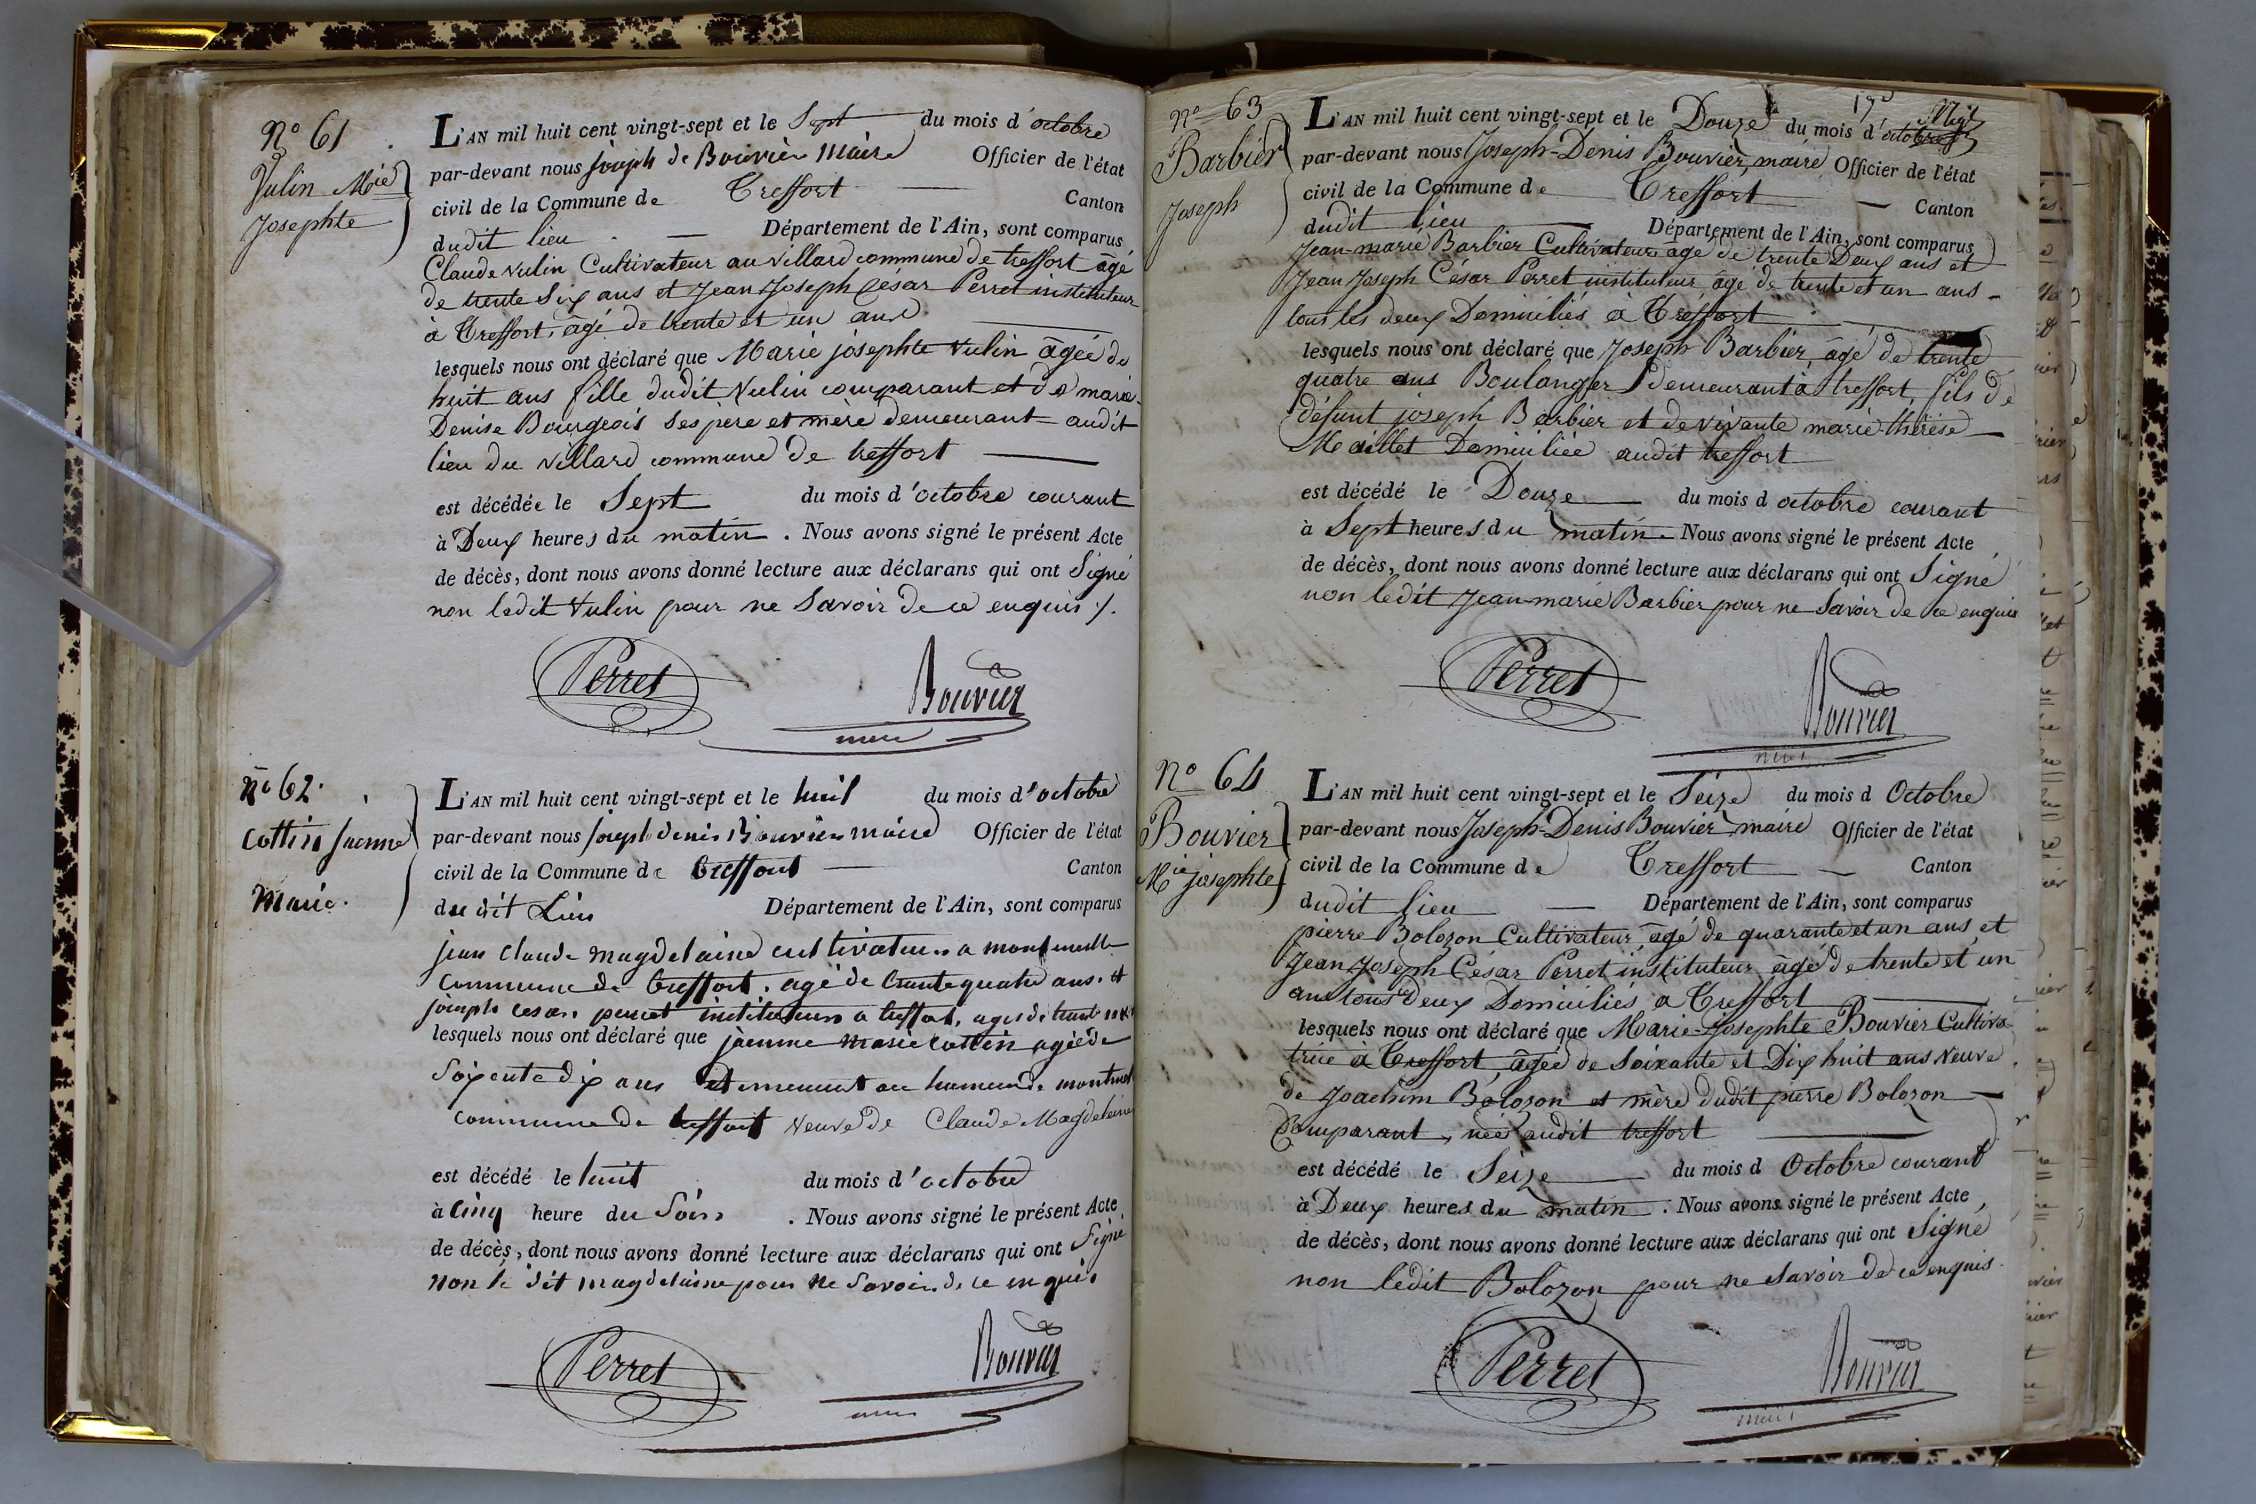 No 61
Vulin Mie
Josephte
L'AN mil huit cent vingt-sept et le Sept du mois d'octobre
par-devant nous joseph de Bouvier Maire Officier de l'état
civil de la Commune de Treffort Canton
dudit lieu Département de l'Ain, sont comparus
Claude Vulin Cultivateur au Villard commune de treffort âgé
de trente Six ans et Jean Joseph César Perret instituteur
à Treffort, âgé de trente et un ans
lesquels nous ont déclaré que Marie josephte Vulin âgée de
huit ans fille dudit Vulin comparant et de marie
Denise Bourgeois Ses père et mère demeurant audit
lieu du Villard commune de treffort
est décédée le Sept du mois d'octobre courant
à Deux heures du matin. Nous avons signé le présent Acte
de décès, dont nous avons donné lecture aux déclarans qui ont Signé
non ledit Vulin pour ne Savoir de ce enquis ⁒
Perret
Bouvier
No 62.
Cottin Jaenne
Marie.
L'AN mil huit cent vingt-sept et le huit du mois d'octobre
par-devant nous joseph denis Bouvier maire Officier de l'état
civil de la Commune de treffort Canton
du dit Lieu Département de l'Ain, sont comparus
jean claude magdelaine cultivateur a
commune de treffort, agé de trente quatre ans. et
joseph cesar perret instituteur a treffort, agé de trente un
lesquels nous ont déclaré que jaenne marie cottin agée de
Soixente dix ans demeurant au hameau de
commune de treffort Veuve de Claude Magdeleine
est décédé le huit du mois d'octobre
à Cinq heure du Soir. Nous avons signé le présent Acte
de décès, dont nous avons donné lecture aux déclarans qui ont Signé
non le dit magdelaine pour ne Savoir de ce enquis
Perret
Bouvier
No 63
Barbier
Joseph
L'AN mil huit cent vingt-sept et le Douze du mois d'octobre
par-devant nous Joseph-Denis Bouvier, maire Officier de l'état
civil de la Commune de Treffort Canton
dudit lieu Département de l'Ain, sont comparus
Jean-marie Barbier Cultivateur, âgé de trente Deux ans et
Jean Joseph César Perret instituteur, âgé de trente et un ans
tous les deux Domiciliés à Treffort
lesquels nous ont déclaré que Joseph Barbier, âgé de trente
quatre ans Boulanger demeurant à treffort, fils de
défunt joseph Barbier et de vivante marie thérèse
Maillet Domiciliée audit treffort
est décédé le Douze du mois d octobre courant
à Sept heures du matin. Nous avons signé le présent Acte
de décès, dont nous avons donné lecture aux déclarans qui ont Signé
non ledit Jean-marie Barbier pour ne Savoir de ce enquis
Perret
Bouvier
No 64
Bouvier
Mie josephte
L'AN mil huit cent vingt-sept et le Seize du mois d Octobre
par-devant nous Joseph-Denis Bouvier, maire Officier de l'état
civil de la Commune de Treffort Canton
dudit lieu Département de l'Ain, sont comparus
pierre Bolozon Cultivateur, âgé de quarante et un ans, et
Jean Joseph César Perret instituteur âgé de trente et un
ans tous deux Domiciliés à Treffort
lesquels nous ont déclaré que Marie-Josephte Bouvier Cultiva-
trice à Treffort, âgée de Soixante et Dix huit ans Veuve
de Joachim Bolozon et mère dudit pierre Bolozon
Comparant, née audit treffort
est décédé le Seize du mois d Octobre courant
à Deux heures du matin. Nous avons signé le présent Acte
de décès, dont nous avons donné lecture aux déclarans qui ont Signé
non ledit Bolozon pour ne Savoir de ce enquis.
Perret
Bouvier